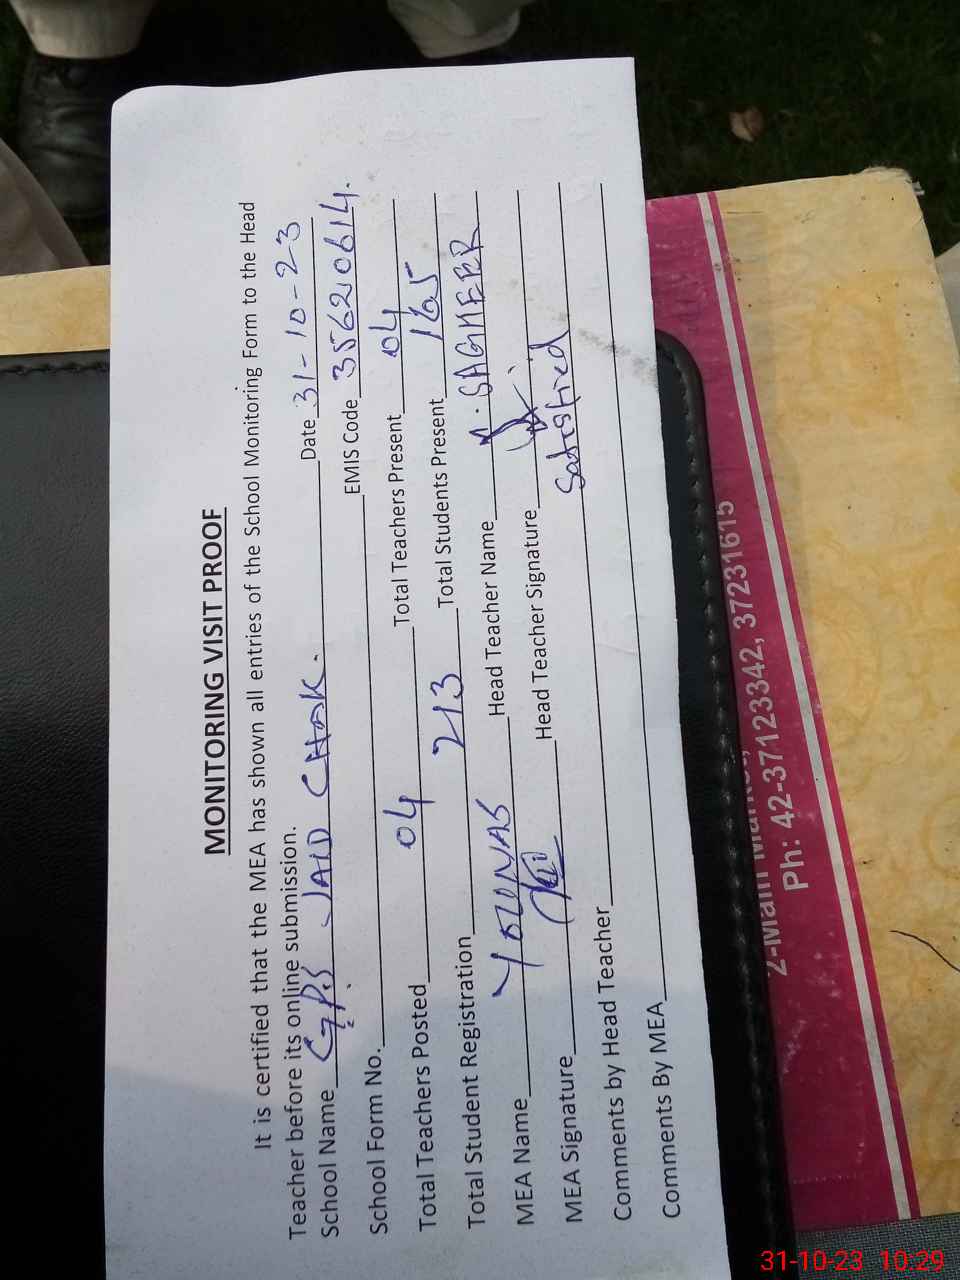 MONITORING VISIT PROOF
It is certified that the MEA has shown all entries of the School Monitoring Form to the Head
Teacher before its online submission.
School Name G.P.S JAID CHAK. Date 31-10-23
School Form No. EMIS Code 35620614.
Total Teachers Posted 04 Total Teachers Present 04
Total Student Registration 213 Total Students Present 165
MEA Name YOUNAS Head Teacher Name SAGHEER
MEA Signature Head Teacher Signature
Comments by Head Teacher Satisfied
Comments By MEA
2-Main Market,
Ph: 42-37123342, 37231615
31-10-23 10:29